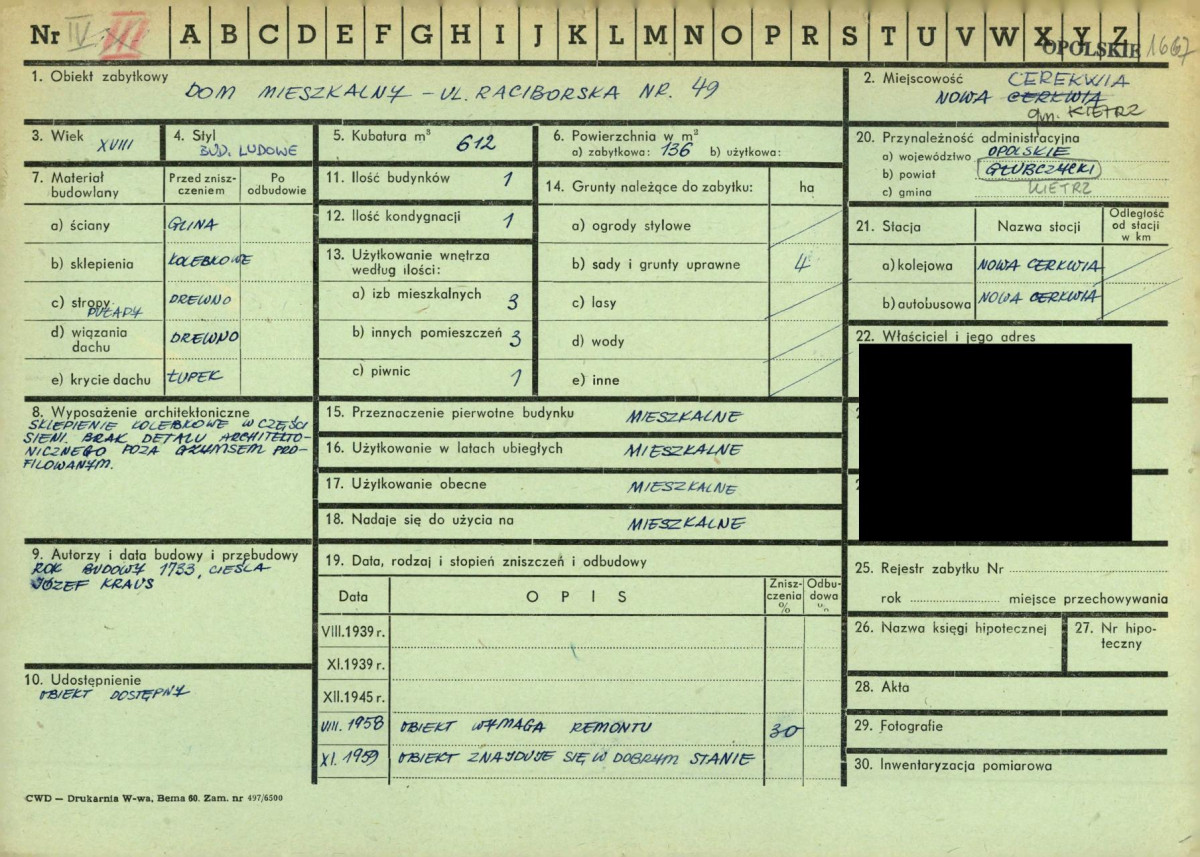 Nr IV III A B C D E F G H I J K L M N O P R S T U V W X Y Z OPOLSKIE 1667
1. Obiekt zabytkowy
DOM MIESZKALNY – UL. RACIBORSKA NR. 49
2. Miejscowość CEREKWIA
NOWA CERKWIA
gm. KIETRZ
3. Wiek XVIII
4. Styl
BUD. LUDOWE
5. Kubatura m³ 612
6. Powierzchnia w m²
a) zabytkowa: 136 b) użytkowa:
20. Przynależność administracyjna
a) województwo OPOLSKIE
b) powiat GŁUBCZYCKI
c) gmina KIETRZ
7. Materiał budowlany
Przed znisz-
czeniem
Po
odbudowie
a) ściany GLINA
b) sklepienia KOLEBKOWE
c) stropy DREWNO
PUŁAPY
d) wiązania
dachu DREWNO
e) krycie dachu ŁUPEK
11. Ilość budynków 1
12. Ilość kondygnacji 1
13. Użytkowanie wnętrza
według ilości:
a) izb mieszkalnych 3
b) innych pomieszczeń 3
c) piwnic 1
14. Grunty należące do zabytku: ha
a) ogrody stylowe
b) sady i grunty uprawne 4
c) lasy
d) wody
e) inne
21. Stacja Nazwa stocji
Odległość
od stacji
w km
a) kolejowa NOWA CERKWIA
b) autobusowa NOWA CERKWIA
22. Właściciel i jego adres
8. Wyposażenie architektoniczne
SKLEPIENIE KOLEBKOWE W CZĘŚCI
SIENI. BRAK DETALU ARCHITEKTO-
NICZNEGO POZA GZYMSEM PRO-
FILOWANYM.
15. Przeznaczenie pierwotne budynku MIESZKALNE
16. Użytkowanie w latach ubiegłych MIESZKALNE
17. Użytkowanie obecne MIESZKALNE
18. Nadaje się do użycia na MIESZKALNE
9. Autorzy i data budowy i przebudowy
ROK BUDOWY 1733, CIEŚLA
JÓZEF KRAUS
10. Udostępnienie
OBIEKT DOSTĘPNY
19. Data, rodzaj i stopień zniszczeń i odbudowy
Data OPIS
Znisz-
czenia
%
Odbu-
dowa
%
VIII.1939 r.
XI.1939 r.
XII.1945 r.
VIII. 1958 OBIEKT WYMAGA REMONTU 30
XI. 1959 OBIEKT ZNAJDUJE SIĘ W DOBRYM STANIE
25. Rejestr zabytku Nr
rok miejsce przechowywania
26. Nazwa księgi hipotecznej
27. Nr hipo-
teczny
28. Akta
29. Fotografie
30. Inwentaryzacja pomiarowa
CWD — Drukarnia W-wa, Bema 60. Zam. nr 497/6500